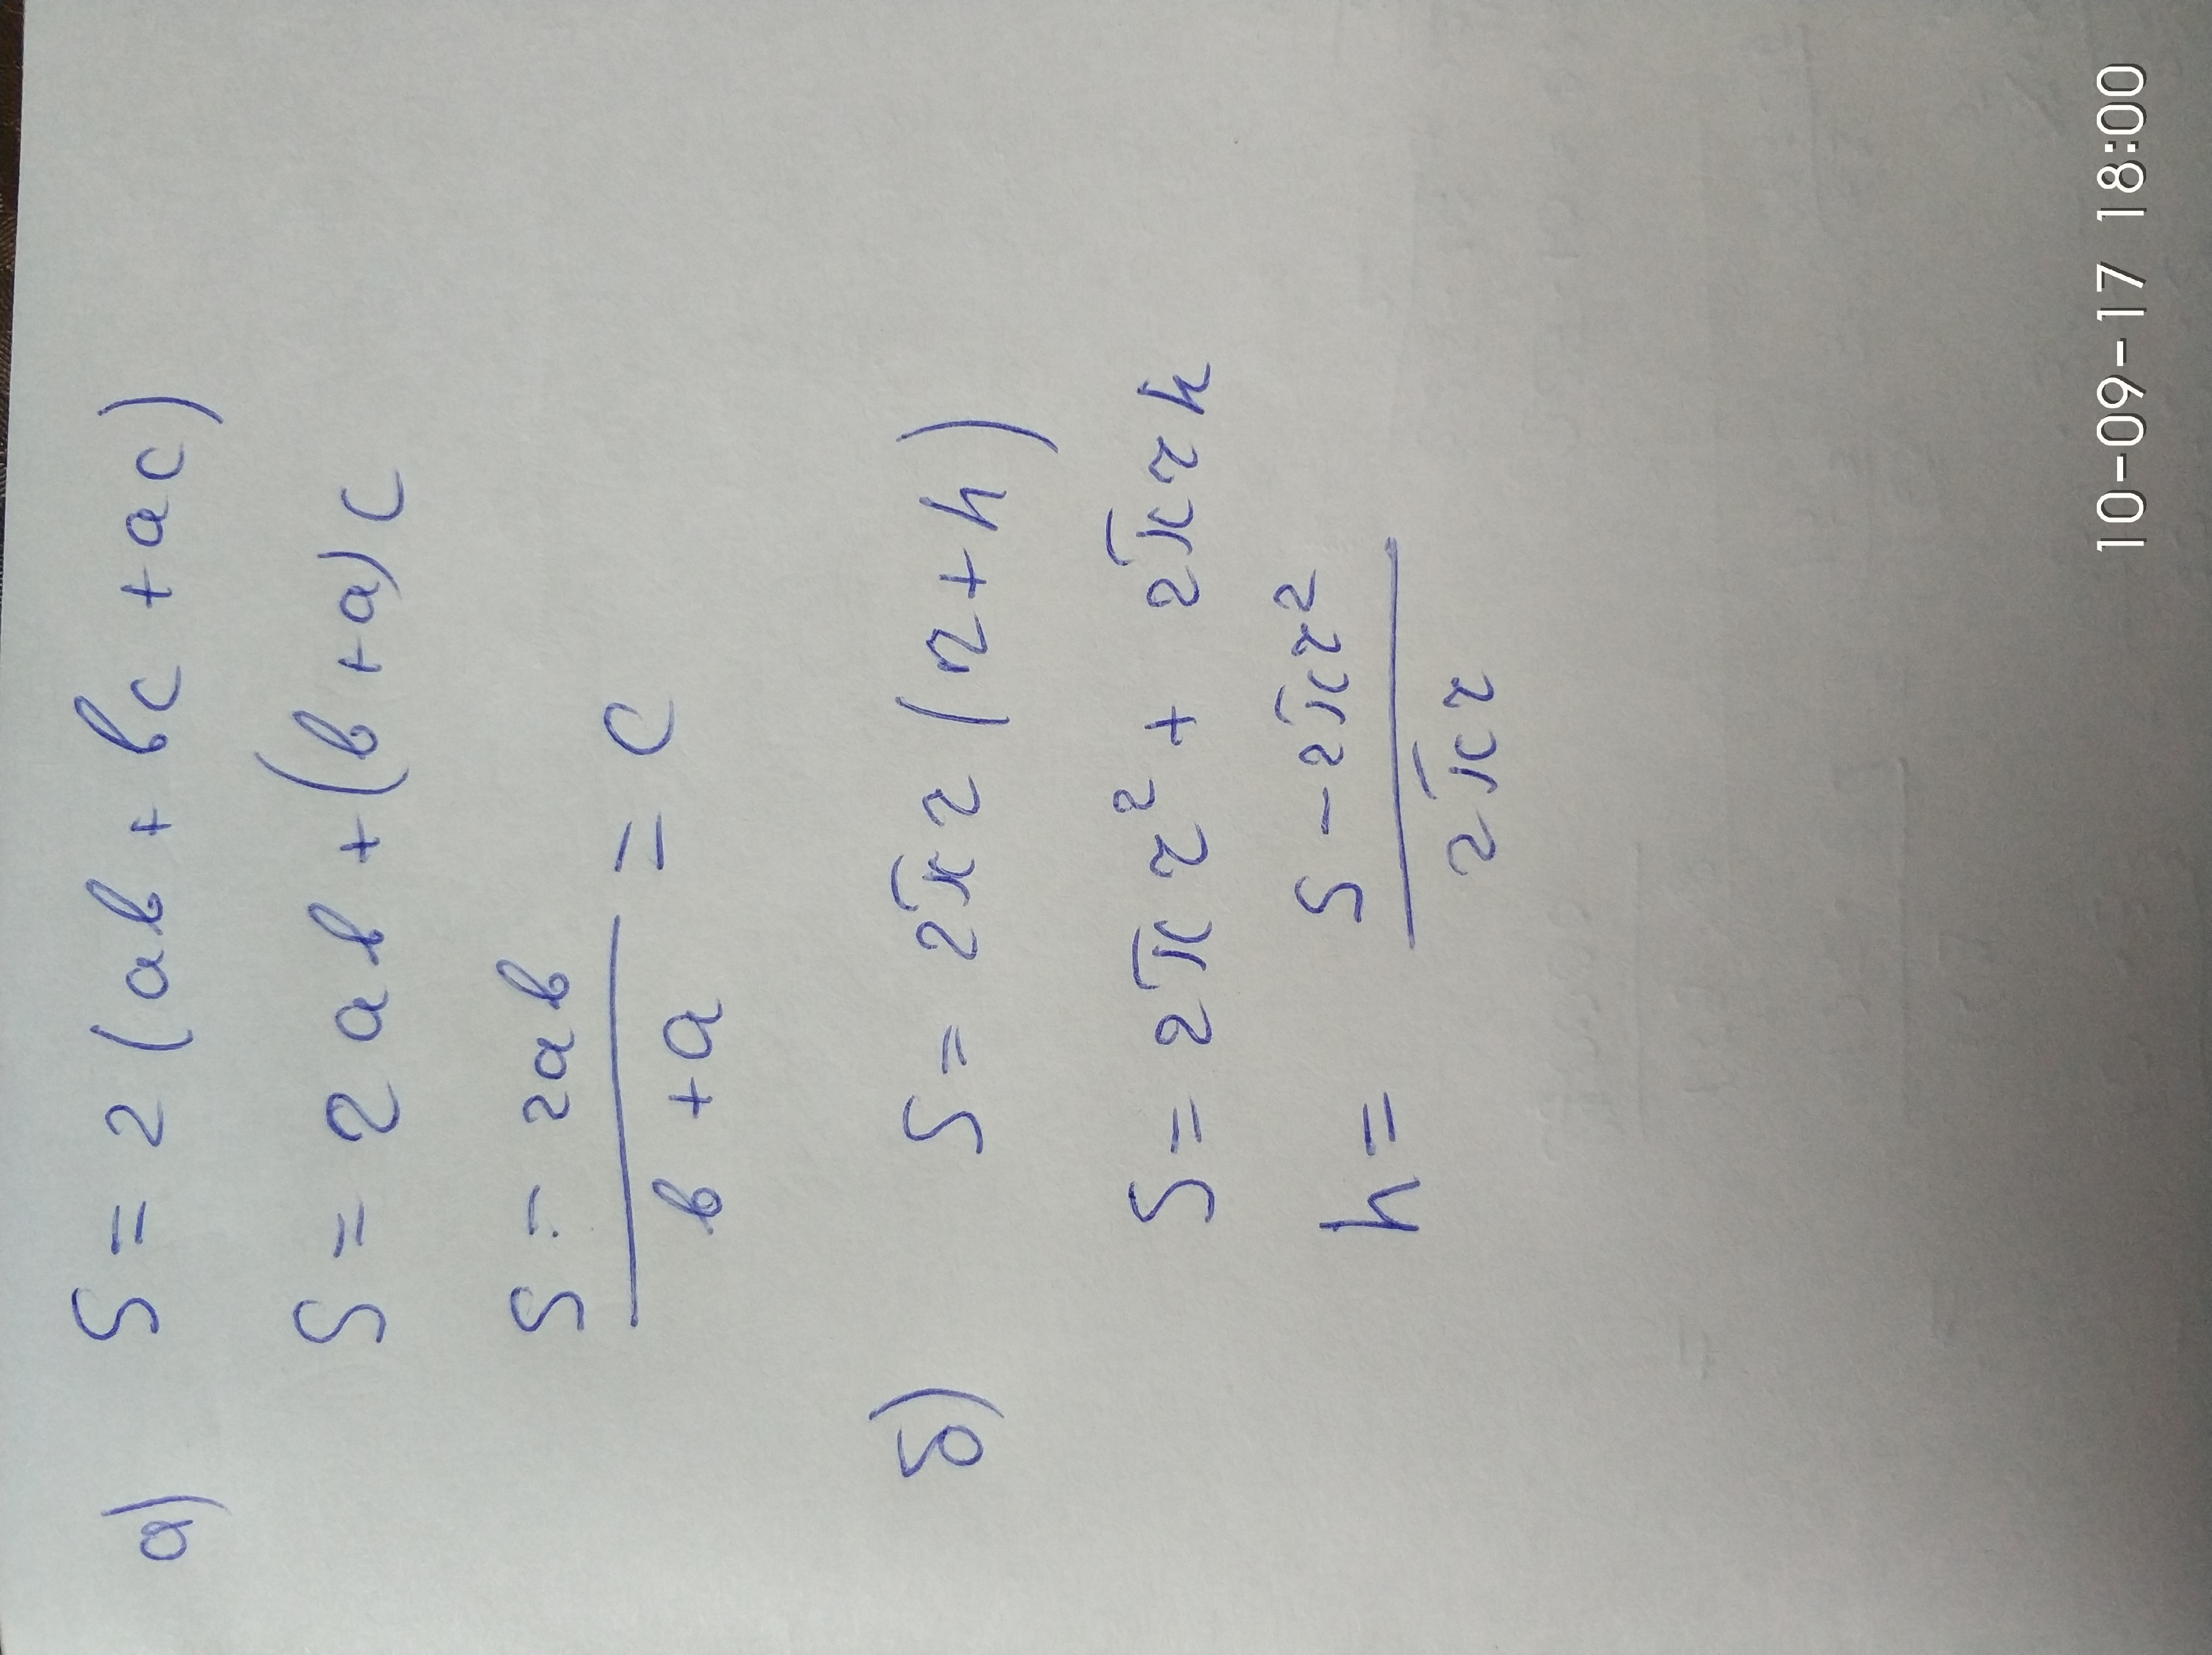 а) S = 2(ab + bc + ac)
S = 2ab + (b + a)c
(S - 2ab)/(b + a) = c
б) S = 2πr(r + h)
S = 2πr² + 2πrh
h = (S - 2πr²)/(2πr)
10-09-17 18:00